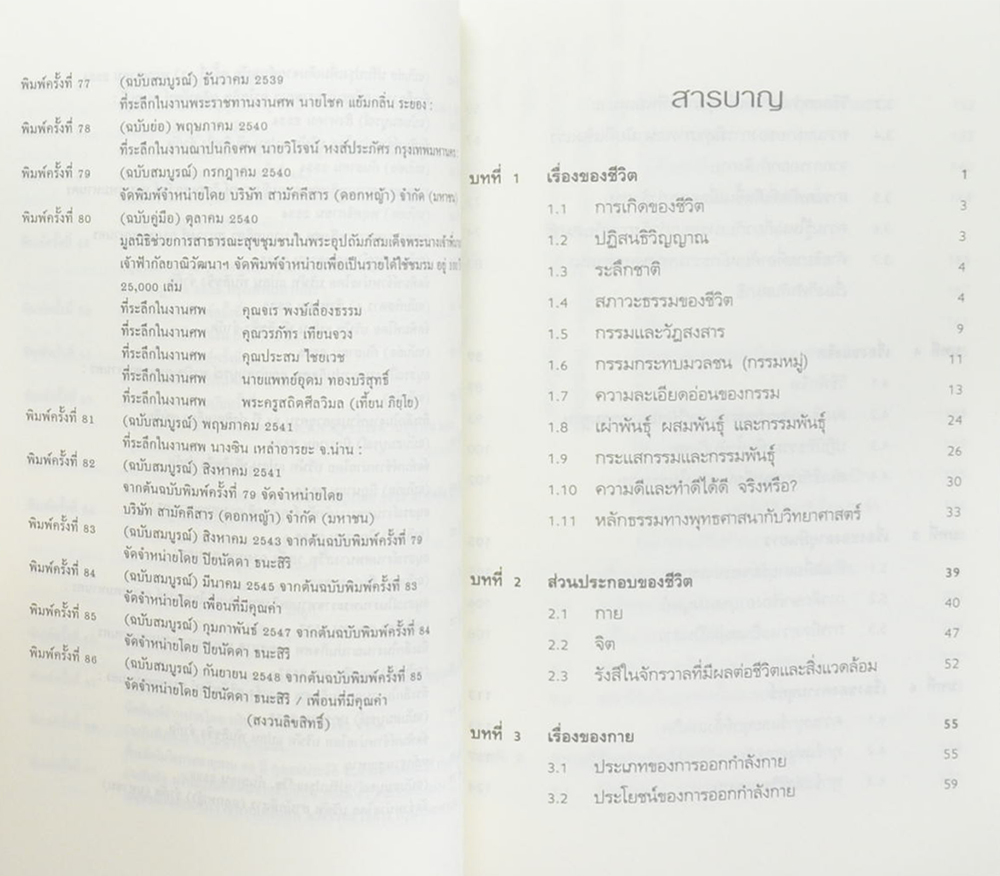 พิมพ์ครั้งที่ 77 (ฉบับสมบูรณ์) ธันวาคม 2539
ที่ระลึกในงานพระราชทานงานศพ นายโชค แย้มกลิ่น ระยอง :
พิมพ์ครั้งที่ 78 (ฉบับย่อ) พฤษภาคม 2540
ที่ระลึกในงานฌาปนกิจศพ นายวิโรจน์ หงส์ประภัศร กรุงเทพมหานคร
พิมพ์ครั้งที่ 79 (ฉบับสมบูรณ์) กรกฎาคม 2540
จัดพิมพ์จำหน่ายโดย บริษัท สามัคคีสาร (ดอกหญ้า) จำกัด (มหาชน)
พิมพ์ครั้งที่ 80 (ฉบับคู่มือ) ตุลาคม 2540
มูลนิธิช่วยการสาธารณะสุขชุมชนในพระอุปถัมภ์สมเด็จพระนางเจ้าพี่นาง
เจ้าฟ้ากัลยาณิวัฒนาฯ จัดพิมพ์จำหน่ายเพื่อเป็นรายได้ใช้ชมรม อยู่
25,000 เล่ม
ที่ระลึกในงานศพ คุณจเร พงษ์เลื่องธรรม
ที่ระลึกในงานศพ คุณวรภัทร เทียนจวง
ที่ระลึกในงานศพ คุณประสม ไชยเวช
ที่ระลึกในงานศพ นายแพทย์อุดม ทองบริสุทธิ์
ที่ระลึกในงานศพ พระครูสถิตศีลวิมล (เที้ยน ภิยฺโย)
พิมพ์ครั้งที่ 81 (ฉบับสมบูรณ์) พฤษภาคม 2541
ที่ระลึกในงานศพ นางซิน เหล่าอารยะ จ.น่าน :
พิมพ์ครั้งที่ 82 (ฉบับสมบูรณ์) สิงหาคม 2541
จากต้นฉบับพิมพ์ครั้งที่ 79 จัดจำหน่ายโดย
บริษัท สามัคคีสาร (ดอกหญ้า) จำกัด (มหาชน)
พิมพ์ครั้งที่ 83 (ฉบับสมบูรณ์) สิงหาคม 2543 จากต้นฉบับพิมพ์ครั้งที่ 79
จัดจำหน่ายโดย ปิยนัดดา ธนะสิริ
พิมพ์ครั้งที่ 84 (ฉบับสมบูรณ์) มีนาคม 2545 จากต้นฉบับพิมพ์ครั้งที่ 83
จัดจำหน่ายโดย เพื่อนที่มีคุณค่า
พิมพ์ครั้งที่ 85 (ฉบับสมบูรณ์) กุมภาพันธ์ 2547 จากต้นฉบับพิมพ์ครั้งที่ 84
จัดจำหน่ายโดย ปิยนัดดา ธนะสิริ
พิมพ์ครั้งที่ 86 (ฉบับสมบูรณ์) กันยายน 2548 จากต้นฉบับพิมพ์ครั้งที่ 85
จัดจำหน่ายโดย ปิยนัดดา ธนะสิริ / เพื่อนที่มีคุณค่า
(สงวนลิขสิทธิ์)
สารบาญ
บทที่ 1 เรื่องของชีวิต 1
1.1 การเกิดของชีวิต 3
1.2 ปฏิสนธิวิญญาณ 3
1.3 ระลึกชาติ 4
1.4 สภาวะธรรมของชีวิต 4
1.5 กรรมและวัฏสงสาร 9
1.6 กรรมกระทบมวลชน (กรรมหมู่) 11
1.7 ความละเอียดอ่อนของกรรม 13
1.8 เผ่าพันธุ์ ผสมพันธุ์ และกรรมพันธุ์ 24
1.9 กระแสกรรมและกรรมพันธุ์ 26
1.10 ความดีและทำดีได้ดี จริงหรือ? 30
1.11 หลักธรรมทางพุทธศาสนากับวิทยาศาสตร์ 33
บทที่ 2 ส่วนประกอบของชีวิต 39
2.1 กาย 40
2.2 จิต 47
2.3 รังสีในจักรวาลที่มีผลต่อชีวิตและสิ่งแวดล้อม 52
บทที่ 3 เรื่องของกาย 55
3.1 ประเภทของการออกกำลังกาย 55
3.2 ประโยชน์ของการออกกำลังกาย 59